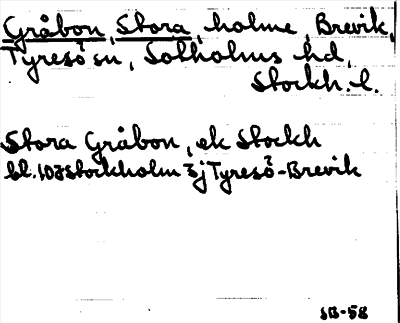 Gråbon, Stora, holme, Brevik,
Tyresö sn, Sotholms hd,
Stockh. l.
Stora Gråbon, ek Stockh
bl. 10 Stockholm Sj Tyresö-Brevik
SB-58